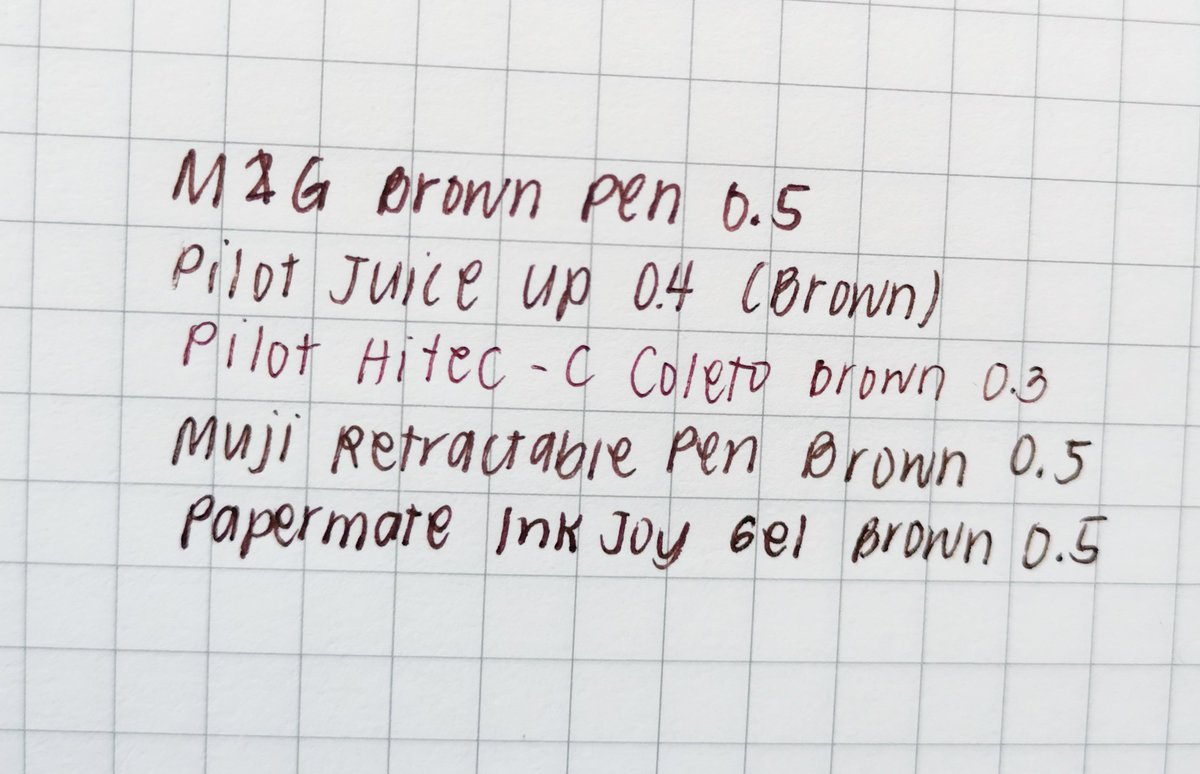 M&G Brown Pen 0.5
Pilot Juice up 0.4 (Brown)
Pilot Hitec-C Coleto Brown 0.3
Muji Retractable Pen Brown 0.5
Papermate InkJoy Gel Brown 0.5